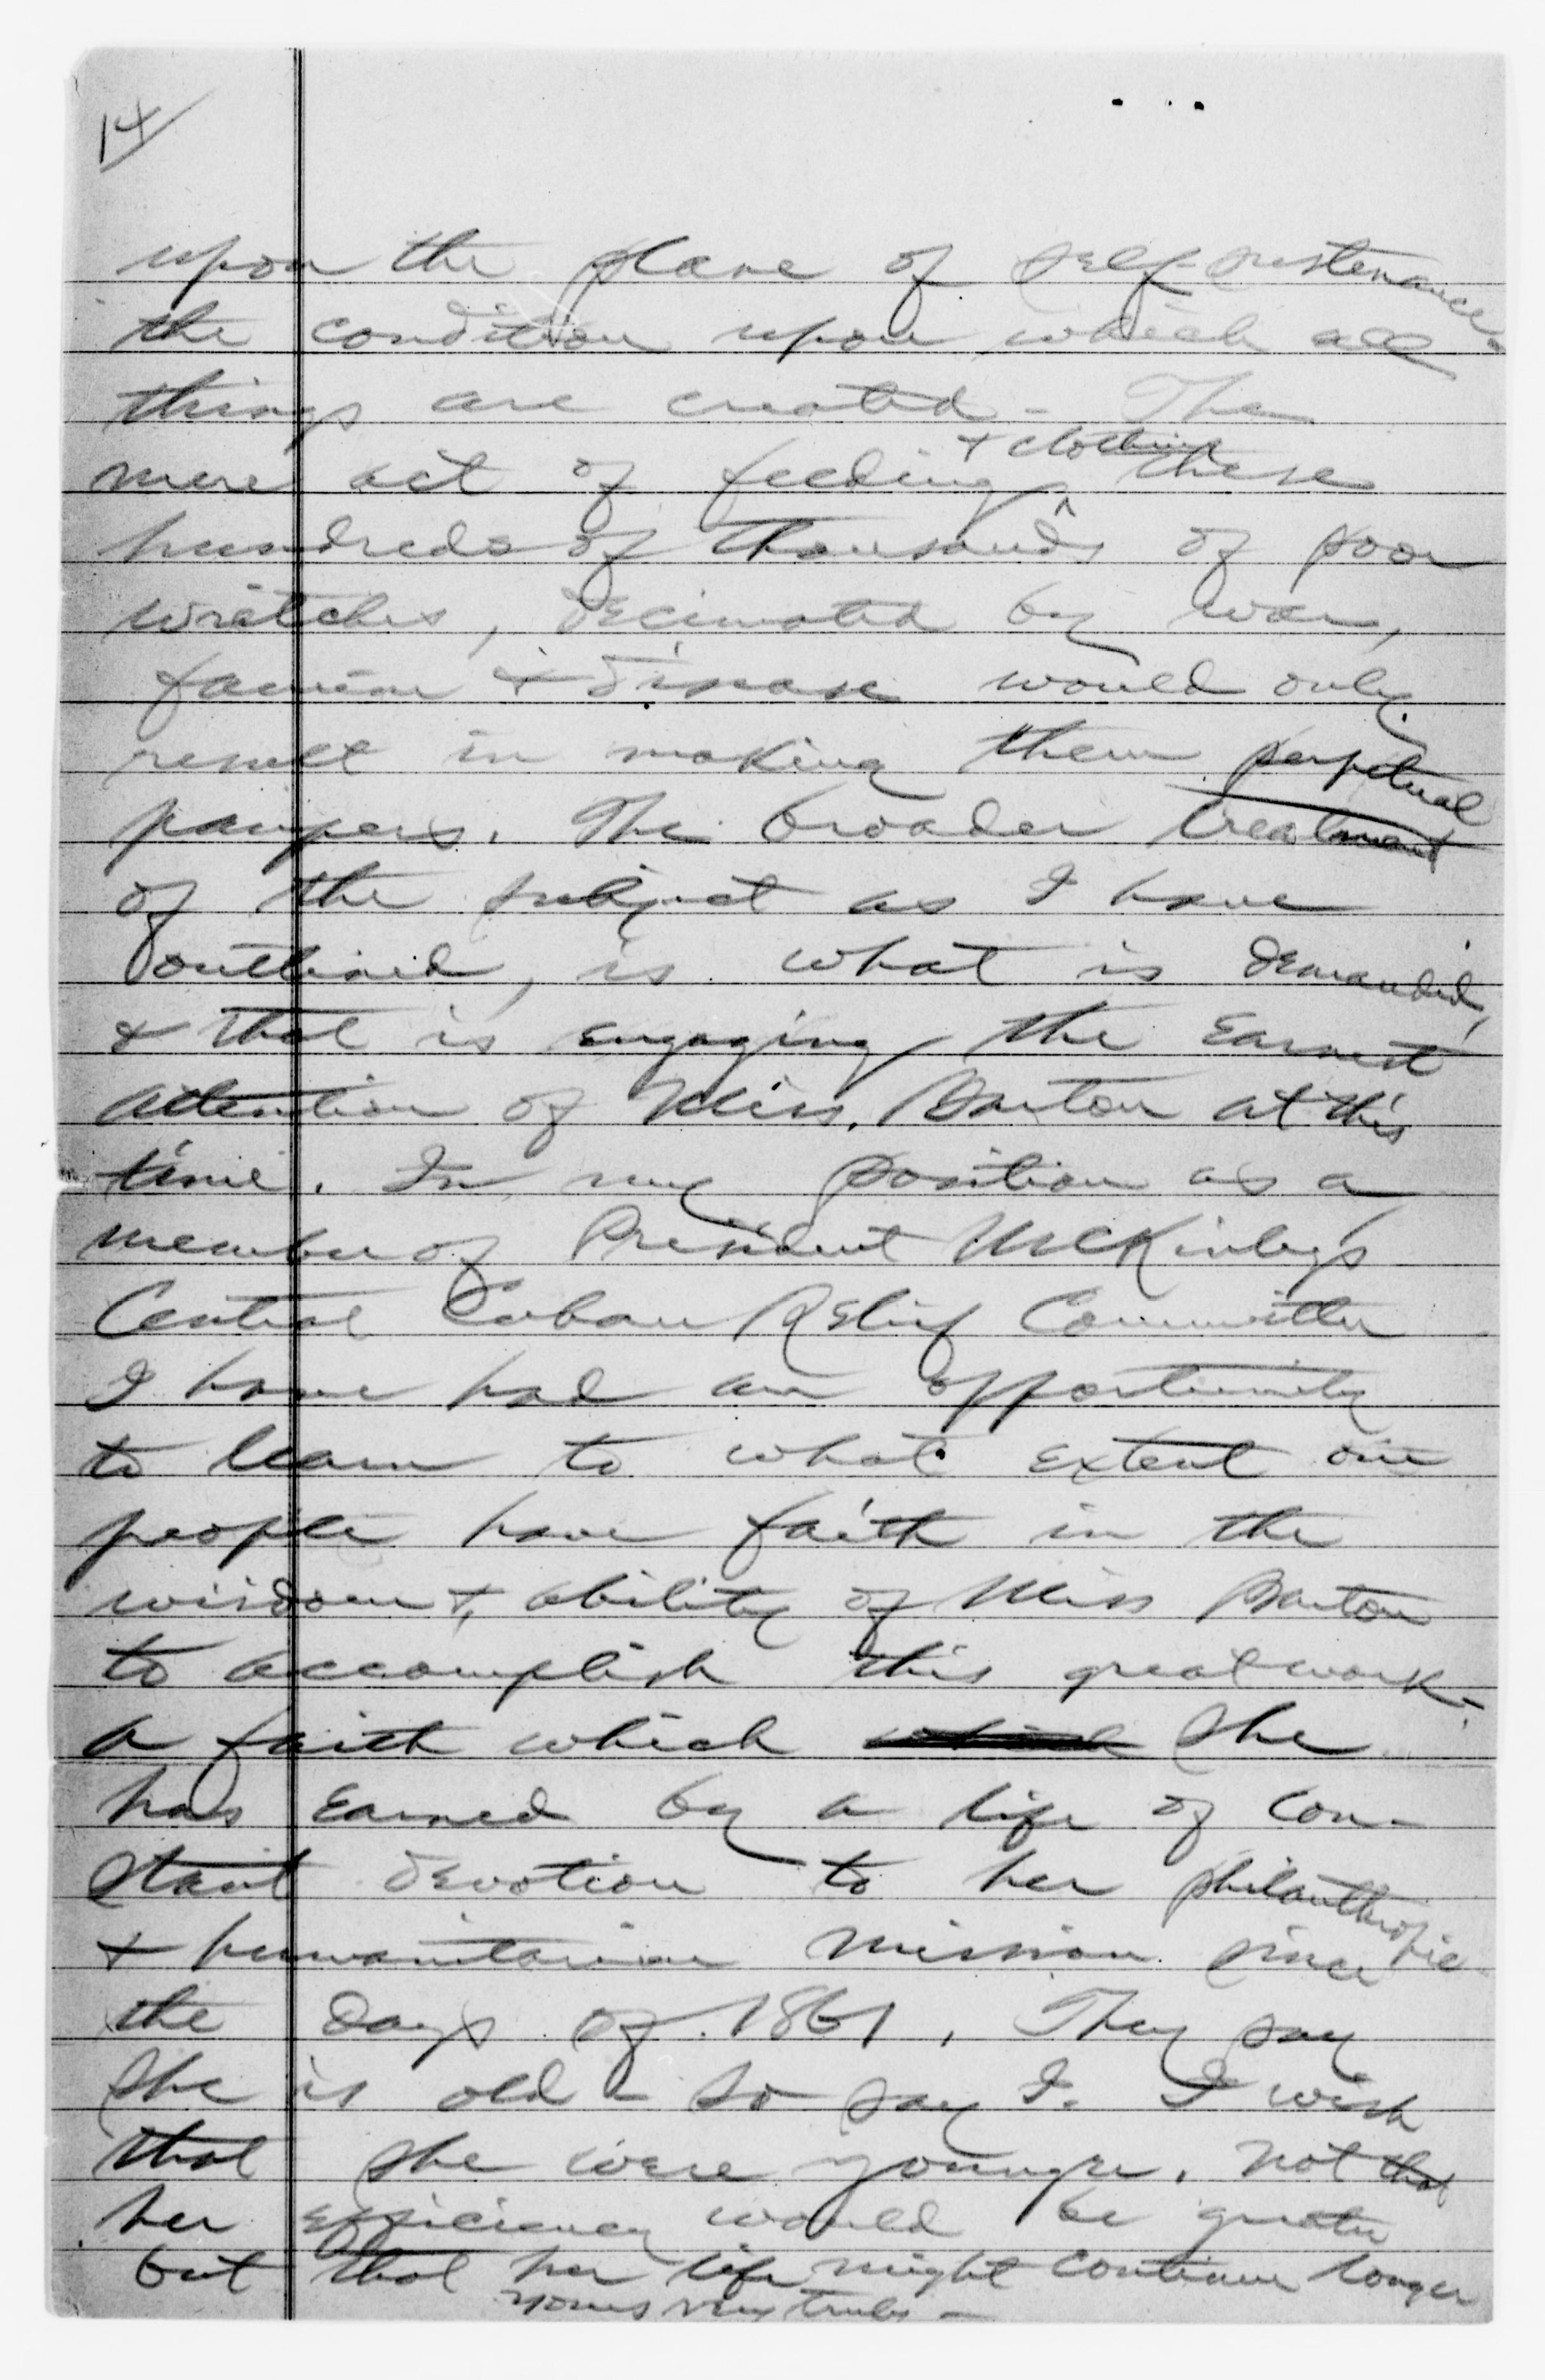 14
upon the plane of self-sustenance -
the condition upon which all
things are created - The
+ clothing
mere act of feeding ^ these
hundreds of thousands of poor
wretches, decimated by war,
famine + disease would only
result in making them perpetual
paupers. The broader treatment
of the subject as I have
outlined, is what is demanded,
& that is engaging the earnest
attention of Miss. Barton at this
time. In my position as a
member of President McKinley's
Central Cuban Relief Committee
I have had an opportunity
to learn to what extent our
people have faith in the
wisdom + ability of Miss Barton
to accomplish this great work -
a faith which which she
has earned by a life of con-
stant devotion to her philanthropic
+ humanitarian mission since
the days of 1861. They say
she is old - so say I. I wish
that she were younger. Not that
her efficiency would be greater
but that her life might continue longer
yours very truly -